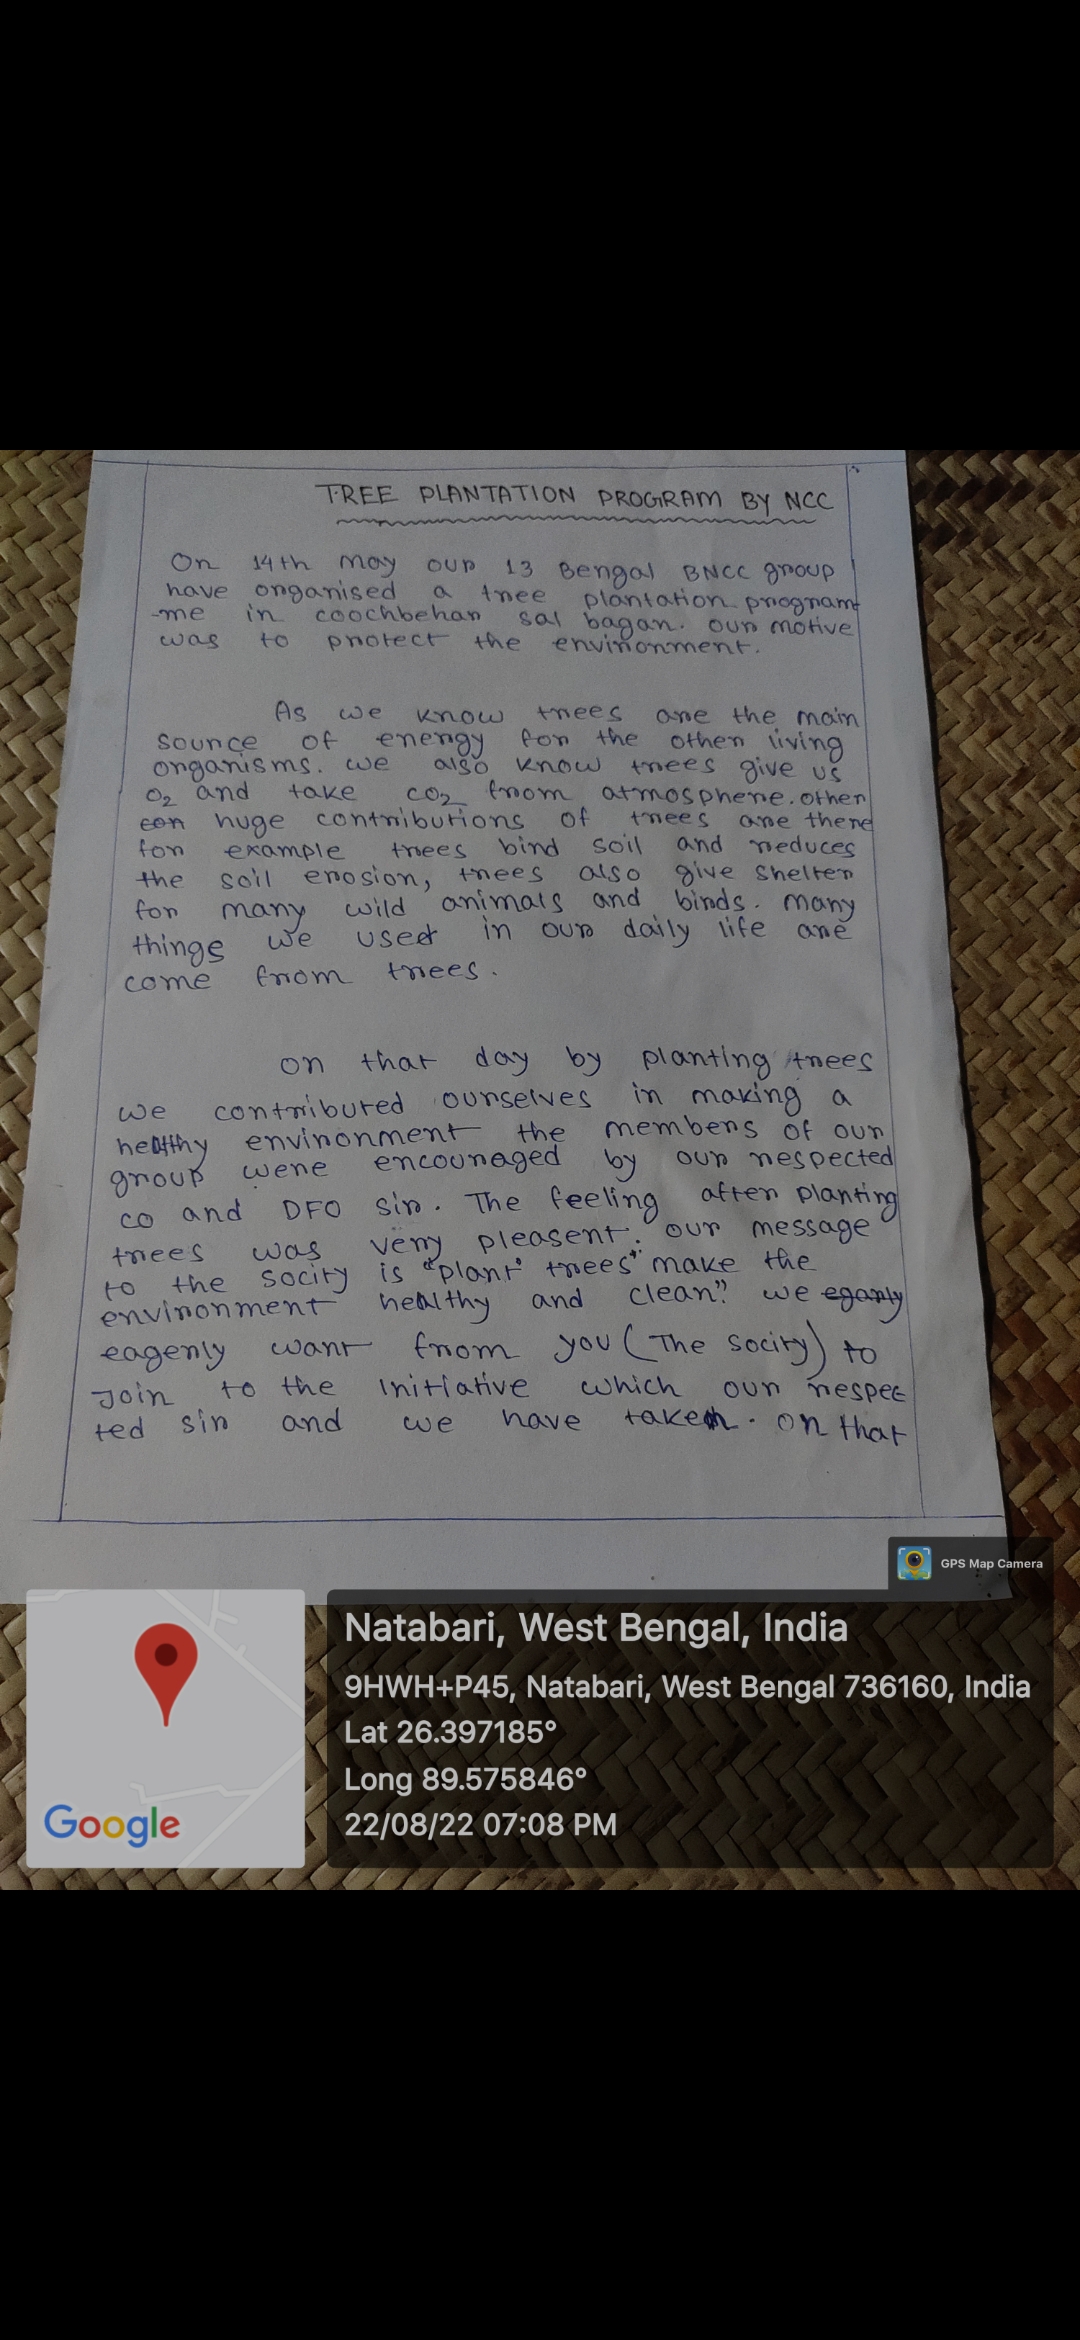 TREE PLANTATION PROGRAM BY NCC
On 14th may our 13 Bengal BNCC group
have organised a tree plantation program
-me in coochbehar sal bagan. our motive
was to protect the environment.
As we know trees are the main
source of energy for the other living
organisms. we also know trees give us
O2 and take CO2 from atmosphere. other
con huge contributions of trees are there
for example trees bind soil and reduces
the soil erosion, trees also give shelter
for many wild animals and birds. many
things we used in our daily life are
come from trees.
on that day by planting trees
we contributed ourselves in making a
healthy environment the members of our
group were encouraged by our respected
co and DFO sir. The feeling after planting
trees was very pleasent. our message
to the socity is "plant trees" make the
environment healthy and clean." we eganly
eagerly want from you (The socity) to
Join to the initiative which our respec
ted sir and we have taken. on that
GPS Map Camera
Natabari, West Bengal, India
9HWH+P45, Natabari, West Bengal 736160, India
Lat 26.397185°
Long 89.575846°
22/08/22 07:08 PM
Google